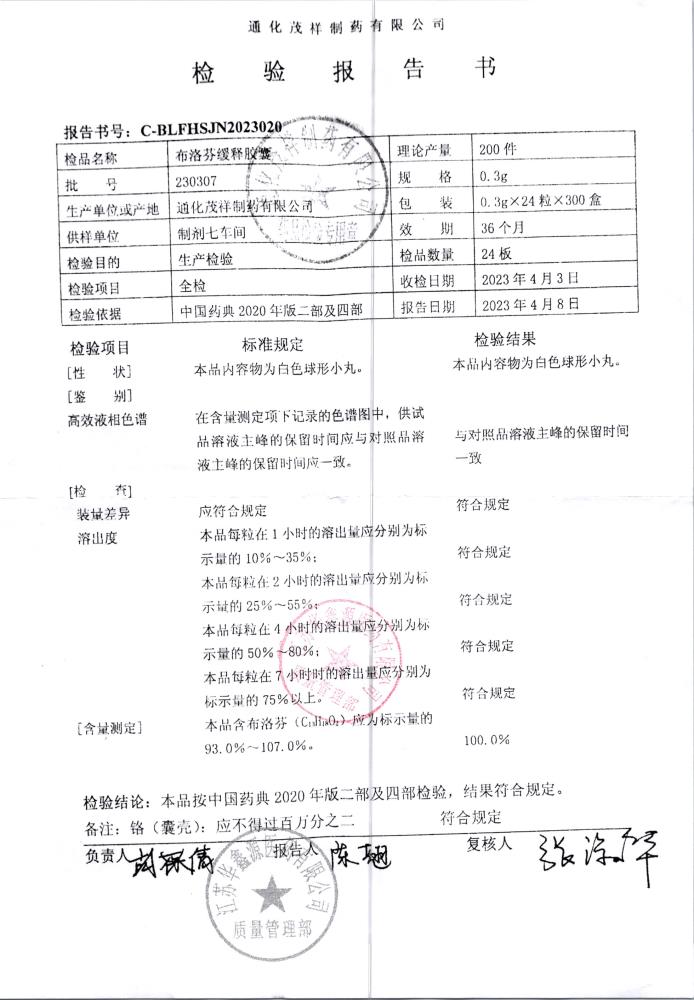 通化茂祥制药有限公司
检 验 报 告 书
报告书号：C-BLFHSJN2023020
检品名称 布洛芬缓释胶囊 理论产量 200 件
批 号 230307 规 格 0.3g
生产单位或产地 通化茂祥制药有限公司 包 装 0.3g×24 粒×300 盒
供样单位 制剂七车间 效 期 36 个月
检验目的 生产检验 检品数量 24 板
检验项目 全检 收检日期 2023 年 4 月 3 日
检验依据 中国药典 2020 年版二部及四部 报告日期 2023 年 4 月 8 日
检验项目 标准规定 检验结果
[性 状] 本品内容物为白色球形小丸。 本品内容物为白色球形小丸。
[鉴 别]
高效液相色谱 在含量测定项下记录的色谱图中，供试
品溶液主峰的保留时间应与对照品溶 与对照品溶液主峰的保留时间
液主峰的保留时间应一致。 一致
[检 查]
装量差异 应符合规定 符合规定
溶出度 本品每粒在 1 小时的溶出量应分别为标
示量的 10%～35%； 符合规定
本品每粒在 2 小时的溶出量应分别为标
示量的 25%～55%； 符合规定
本品每粒在 4 小时的溶出量应分别为标
示量的 50%～80%； 符合规定
本品每粒在 7 小时时的溶出量应分别为
标示量的 75%以上。 符合规定
[含量测定] 本品含布洛芬（C₁₃H₁₈O₂）应为标示量的
93.0%～107.0%。 100.0%
检验结论：本品按中国药典 2020 年版二部及四部检验，结果符合规定。
备注：铬（囊壳）：应不得过百万分之二 符合规定
负责人 报告人 陈 复核人 张
江苏华鑫源医药有限公司
质量管理部